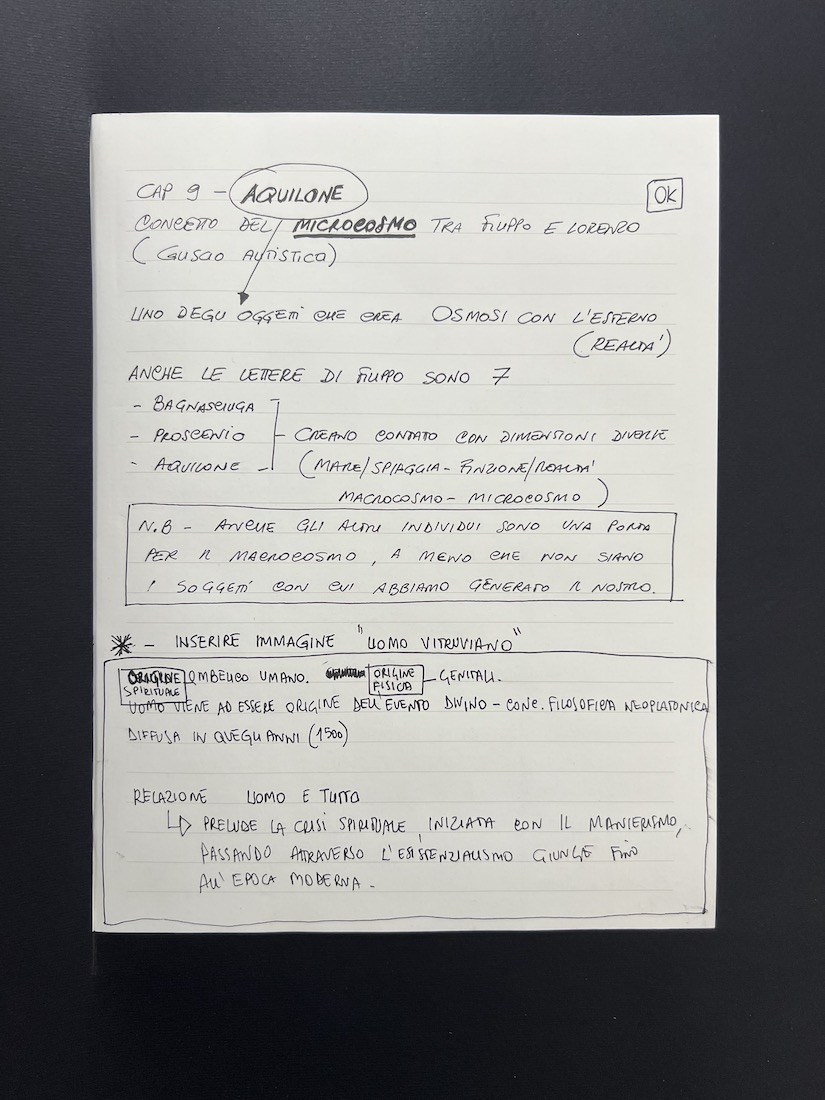 CAP 9 - AQUILONE
OK
CONCETTO DEL MICROCOSMO TRA FILIPPO E LORENZO
(GUSCIO AUTISTICA)
UNO DEGLI OGGETTI CHE CREA OSMOSI CON L'ESTERNO
(REALTA')
ANCHE LE LETTERE DI FILIPPO SONO 7
- BAGNASCIUGA
- PROSCENIO - CREANO CONTATTO CON DIMENSIONI DIVERSE
- AQUILONE - (MARE/SPIAGGIA - FINZIONE/REALTA'
MACROCOSMO - MICROCOSMO)
N.B - ANCHE GLI ALTRI INDIVIDUI SONO UNA PORTA
PER IL MACROCOSMO, A MENO CHE NON SIANO
I SOGGETTI CON CUI ABBIAMO GENERATO IL NOSTRO.
* - INSERIRE IMMAGINE "UOMO VITRUVIANO"
ORIGINE SPIRITUALE OMBELICO UMANO. ORIGINE FISICA - GENITALI.
UOMO VIENE AD ESSERE ORIGINE DELL'EVENTO DIVINO - CONC. FILOSOFICA NEOPLATONICA
DIFFUSA IN QUEGLI ANNI (1500)
RELAZIONE UOMO E TUTTO
↳ PRELUDE LA CRISI SPIRITUALE, INIZIATA CON IL MANIERISMO,
PASSANDO ATTRAVERSO L'ESISTENZIALISMO GIUNGE FINO
ALL'EPOCA MODERNA.